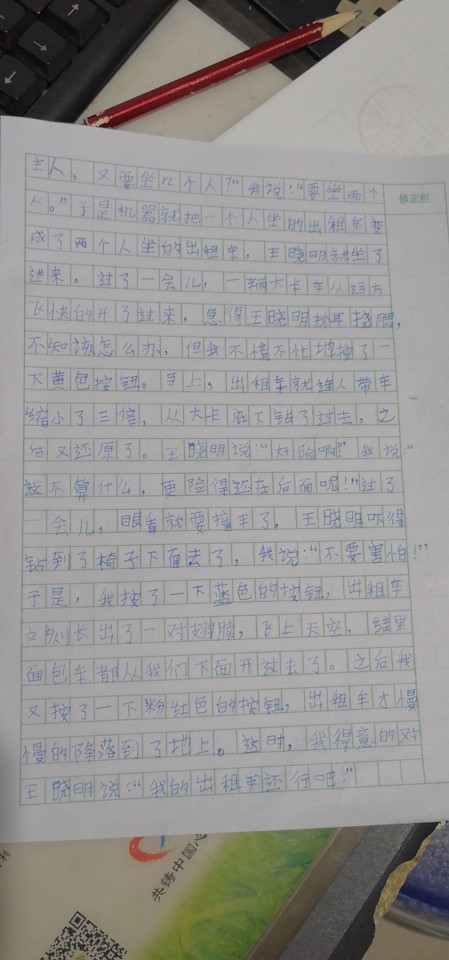 主人，又要坐几个人？”我说：“要坐两个
修正栏
人。”于是机器就把一个人坐的出租车变
成了两个人坐的出租车，王晓明就坐了
进来。过了一会儿，一辆大卡车从远方
飞快的开了过来，急得王晓明抓耳挠腮，
不知该怎么办，但我不慌不忙地按了一
下黄色按钮。马上，出租车就连人带车
缩小了三倍，从大卡底下钻了过去，之
后又还原了。王晓明说：“好险啊！”我说：“
这不算什么，更险得还在后面呢！”过了
一会儿，眼看就要撞车了，王晓明吓得
钻到了椅子下面去了，我说：“不要害怕！”
于是，我按了一下蓝色的按钮，出租车
立刻长出了一对翅膀，飞上天空，结果
面包车都从我们下面开过去了。之后我
又按了一下粉红色的按钮，出租车才慢
慢的降落到了地上。这时，我得意的对
王晓明说：“我的出租车还行吧！”
共铸中国心